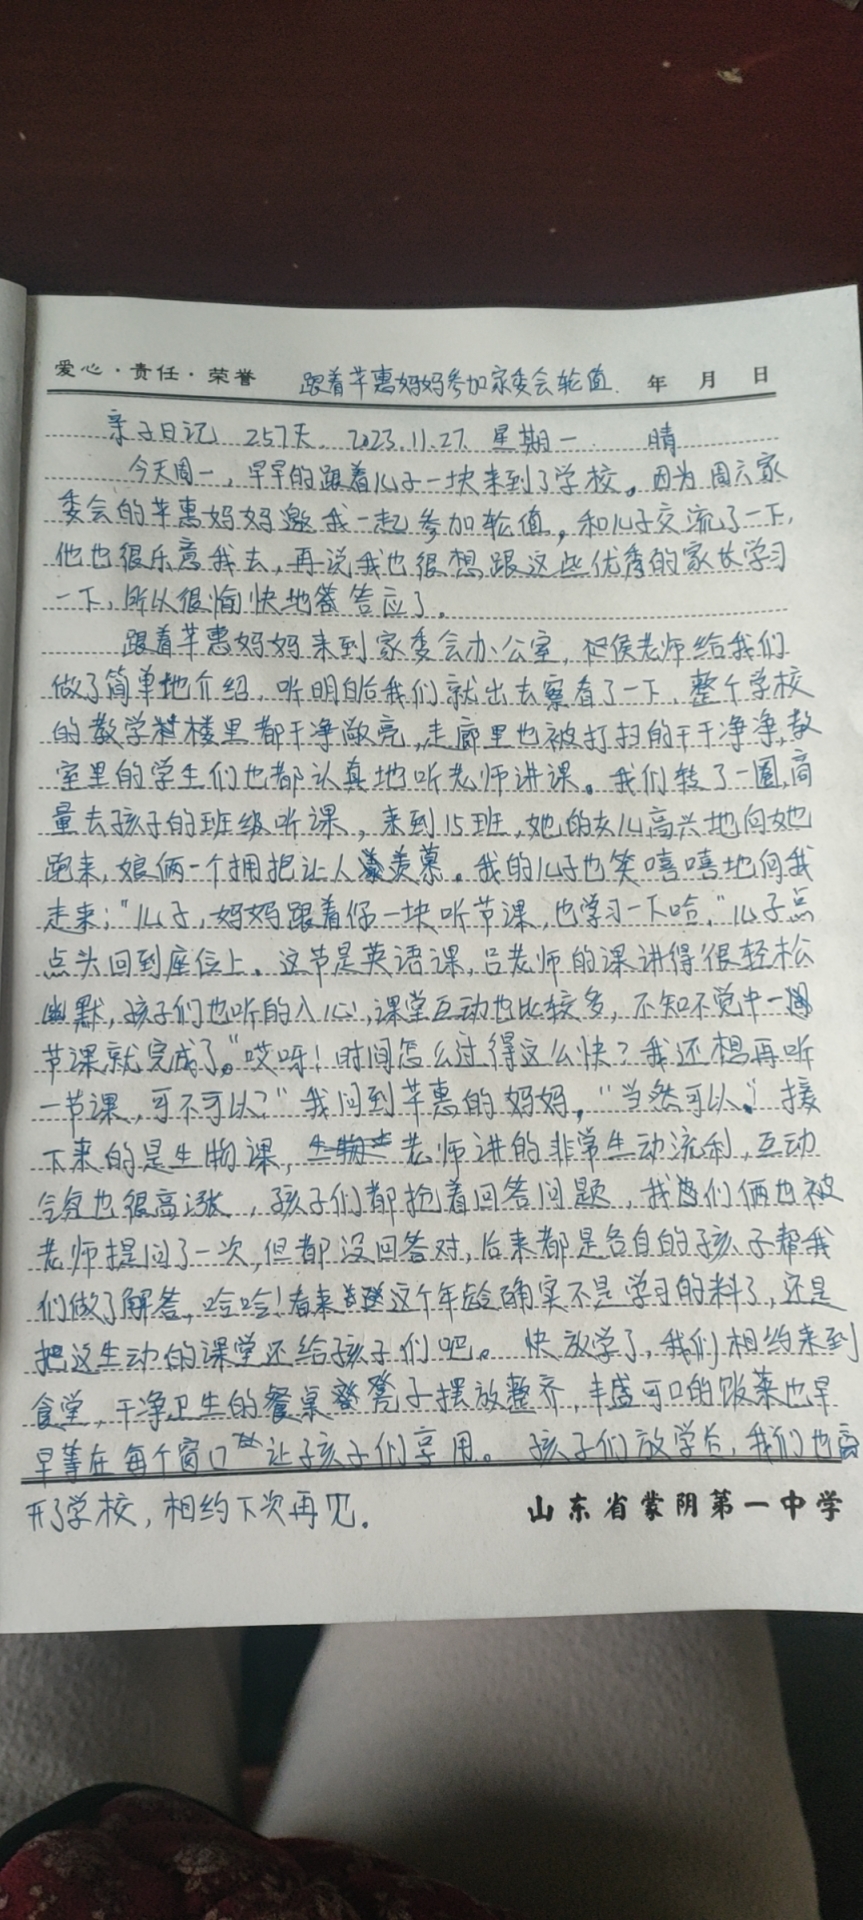 爱心·责任·荣誉 跟着芊惠妈妈参加家委会轮值 年 月 日
亲子日记 257天 2023.11.27 星期一 晴
今天周一，早早的跟着儿子一块来到了学校。因为周六家
委会的芊惠妈妈邀我一起参加轮值，和儿子交流了一下，
他也很乐意我去，再说我也很想跟这些优秀的家长学习
一下，所以很愉快地答应了。
跟着芊惠妈妈来到家委会办公室，老师给我们
做了简单地介绍，听明白后我们就出去察看了一下，整个学校
的教学楼里都干净敞亮，走廊里也被打扫的干干净净，教
室里的学生们也都认真地听老师讲课。我们转了一圈，商
量去孩子的班级听课，来到15班，她的女儿高兴地向她
跑来，娘俩一个拥抱让人羡慕。我的儿子也笑嘻嘻地向我
走来；“儿子，妈妈跟着你一块听节课，也学习一下哈，”儿子点
点头回到座位上。这节是英语课，吕老师的课讲得很轻松
幽默，孩子们也听的入心，课堂互动也比较多，不知不觉中一
节课就完成了。“哎呀！时间怎么过得这么快？我还想再听
一节课，可不可以？”我问到芊惠的妈妈，“当然可以！”接
下来的是生物课，老师讲的非常生动流利，互动
气氛也很高涨，孩子们都抢着回答问题，我们俩也被
老师提问了一次，但都没回答对，后来都是各自的孩子帮我
们做了解答，哈哈！看来这个年龄确实不是学习的料了，还是
把这生动的课堂还给孩子们吧。快放学了，我们相约来到
食堂，干净卫生的餐桌凳子摆放整齐，丰盛可口的饭菜也早
早等在每个窗口处让孩子们享用。孩子们放学后，我们也离
开了学校，相约下次再见。
山东省蒙阴第一中学